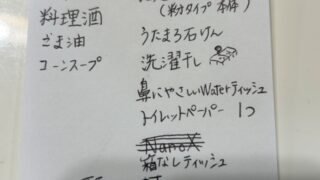 (粉タイプ 本体)
料理酒
ごま油
コーンスープ
うたまろ石けん
洗濯干し
鼻にやさしいWaterティッシュ
トイレットペーパー 1つ
NanoX
箱なしティッシュ